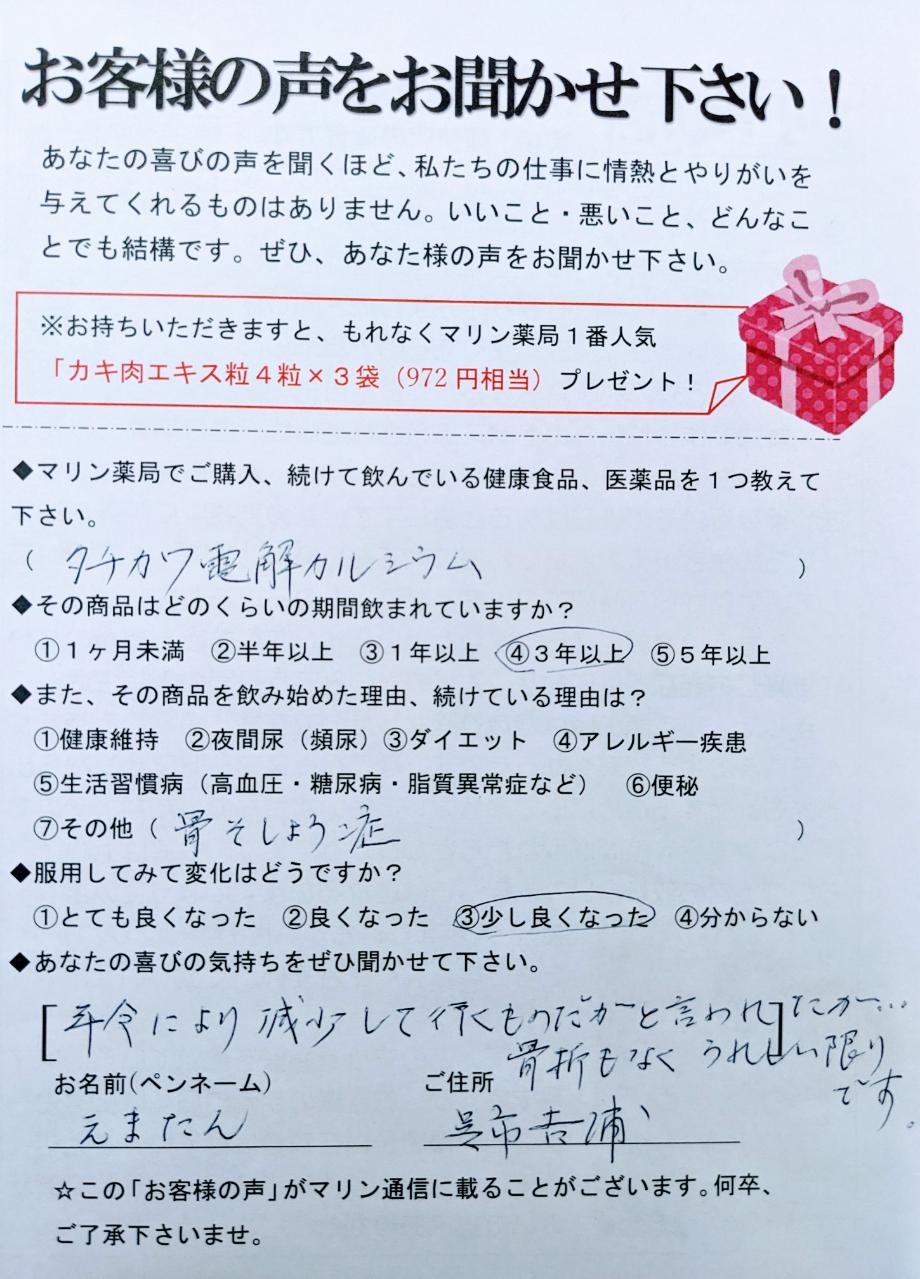 お客様の声をお聞かせ下さい！
あなたの喜びの声を聞くほど、私たちの仕事に情熱とやりがいを
与えてくれるものはありません。いいこと・悪いこと、どんなこ
とでも結構です。ぜひ、あなた様の声をお聞かせ下さい。
※お持ちいただきますと、もれなくマリン薬局１番人気
「カキ肉エキス粒４粒×３袋（972円相当）プレゼント！
◆マリン薬局でご購入、続けて飲んでいる健康食品、医薬品を１つ教えて
下さい。
（ タチカワ電解カルシウム ）
◆その商品はどのくらいの期間飲まれていますか？
①１ヶ月未満 ②半年以上 ③１年以上 ④３年以上 ⑤５年以上
◆また、その商品を飲み始めた理由、続けている理由は？
①健康維持 ②夜間尿（頻尿）③ダイエット ④アレルギー疾患
⑤生活習慣病（高血圧・糖尿病・脂質異常症など） ⑥便秘
⑦その他（ 骨そしょう症 ）
◆服用してみて変化はどうですか？
①とても良くなった ②良くなった ③少し良くなった ④分からない
◆あなたの喜びの気持ちをぜひ聞かせて下さい。
[年令により減少して行くものだがと言われ]たが…
骨折もなくうれしい限り
です。
お名前(ペンネーム) ご住所
えまたん 呉市吉浦
☆この「お客様の声」がマリン通信に載ることがございます。何卒、
ご了承下さいませ。